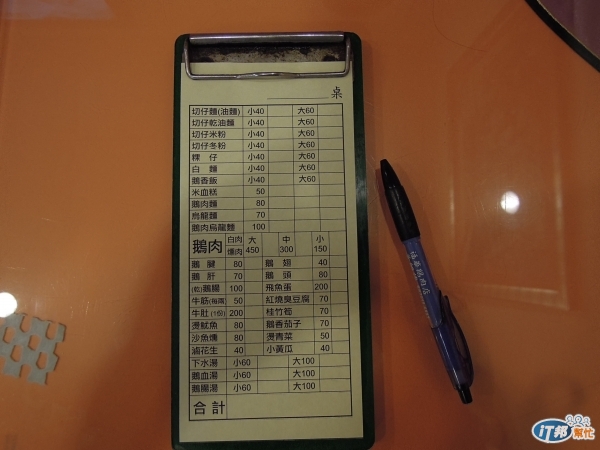 桌
切仔麵(油麵) 小40 大60
切仔乾油麵 小40 大60
切仔米粉 小40 大60
切仔冬粉 小40 大60
粿 仔 小40 大60
白 麵 小40 大60
鵝香飯 小40 大60
米血糕 50
鵝肉麵 80
烏龍麵 70
鵝肉烏龍麵 100
鵝肉 白肉 燻肉 大450 中300 小150
鵝 腱 80 鵝 翅 40
鵝 肝 70 鵝 頭 80
(乾)鵝腸 100 飛魚蛋 200
牛筋(每兩) 50 紅燒臭豆腐 70
牛肚(1份) 200 桂竹筍 70
燙魷魚 80 鵝香茄子 70
沙魚燻 80 燙青菜 50
滷花生 40 小黃瓜 40
下水湯 小60 大100
鵝血湯 小60 大100
鵝腸湯 小60 大100
合計
鵝肉店
iT邦幫忙